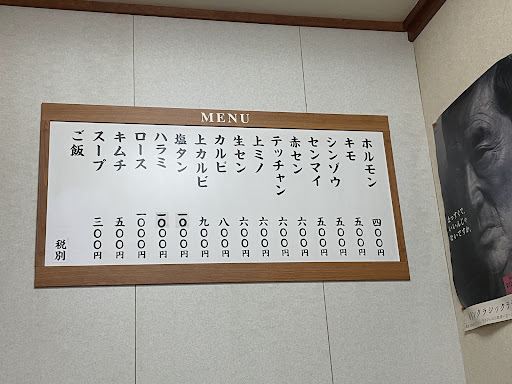 MENU
ホルモン 四〇〇円
キモ 五〇〇円
シンゾウ 五〇〇円
センマイ 五〇〇円
赤セン 六〇〇円
テッチャン 六〇〇円
上ミノ 六〇〇円
生セン 六〇〇円
カルビ 八〇〇円
上カルビ 九〇〇円
塩タン 一〇〇〇円
ハラミ 一〇〇〇円
ロース 一〇〇〇円
キムチ 五〇〇円
スープ 三〇〇円
ご飯
税別
いいんじゃ
ないですか。
クラシックラ